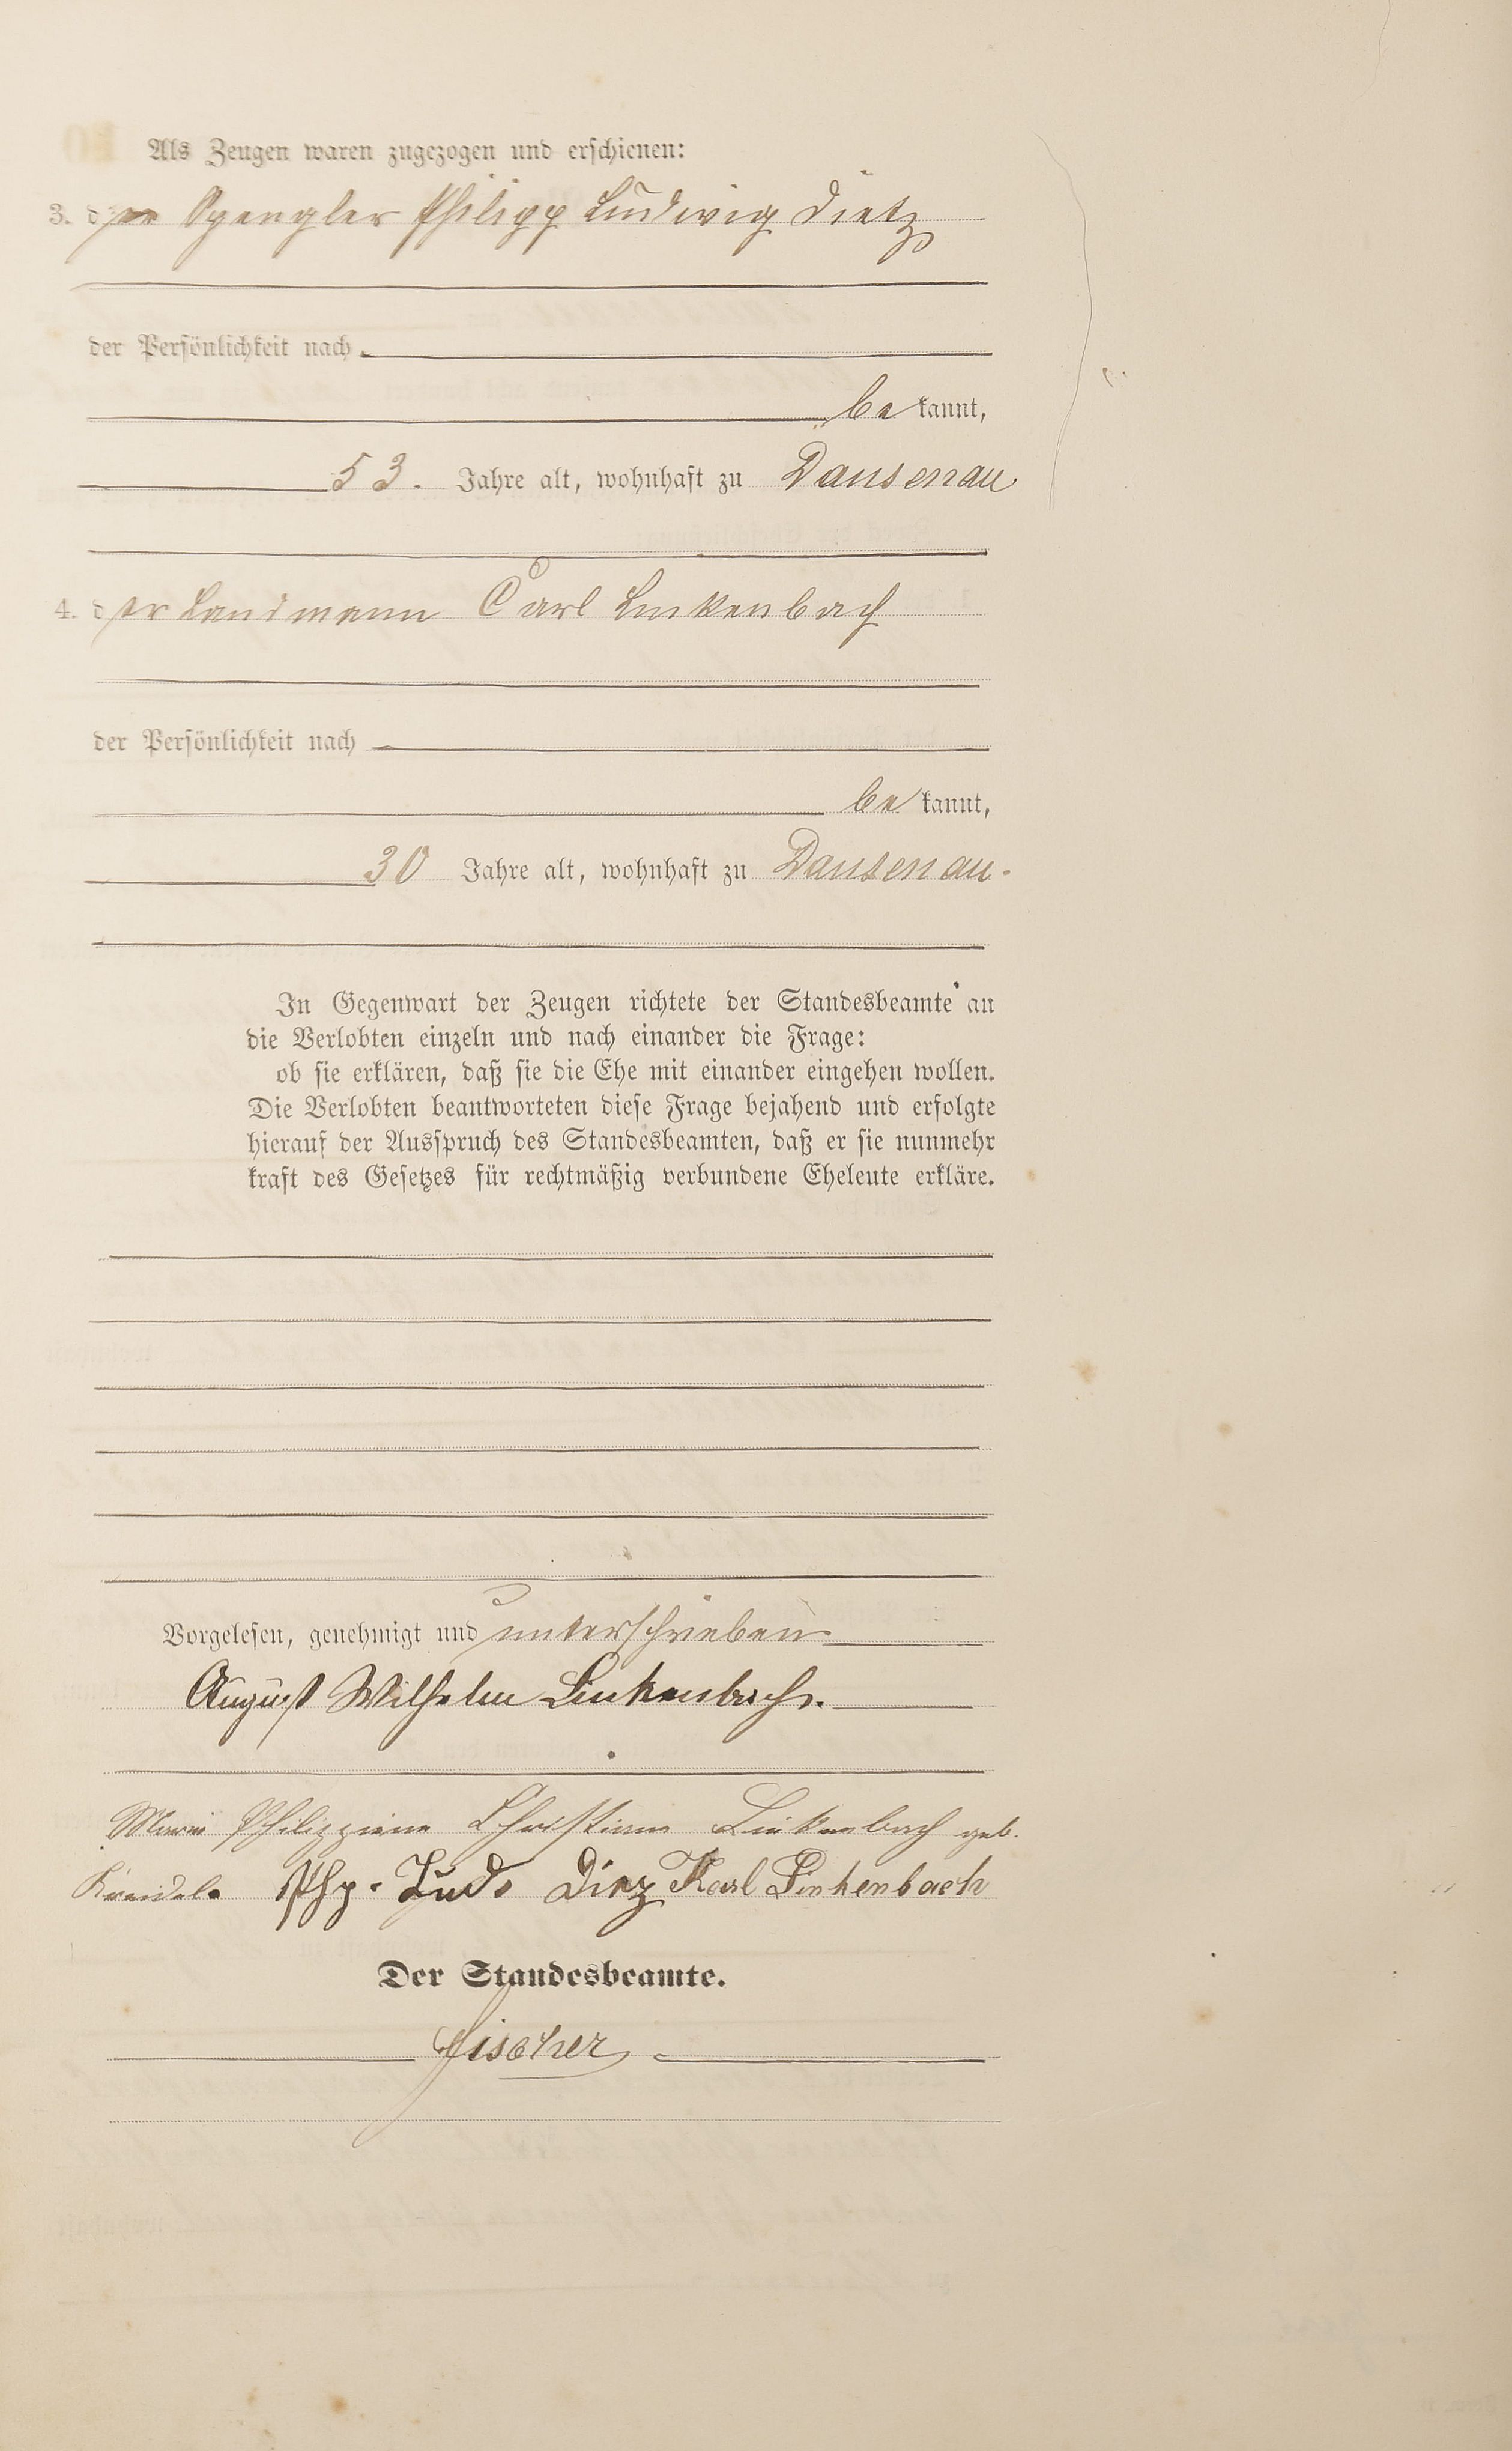 Als Zeugen waren zugezogen und erschienen:
3. der Spengler Philipp Ludwig Dietz
der Persönlichkeit nach
bekannt,
53. Jahre alt, wohnhaft zu Dausenau
4. der Landmann Carl Linkenbach
der Persönlichkeit nach
bekannt,
30 Jahre alt, wohnhaft zu Dausenau.
In Gegenwart der Zeugen richtete der Standesbeamte an
die Verlobten einzeln und nach einander die Frage:
ob sie erklären, daß sie die Ehe mit einander eingehen wollen.
Die Verlobten beantworteten diese Frage bejahend und erfolgte
hierauf der Ausspruch des Standesbeamten, daß er sie nunmehr
kraft des Gesetzes für rechtmäßig verbundene Eheleute erkläre.
Vorgelesen, genehmigt und unterschrieben
August Wilhelm Linkenbach.
Marie Philippine Christiane Linkenbach geb.
Php. Lud. Dietz Karl Linkenbach
Der Standesbeamte.
Fischer